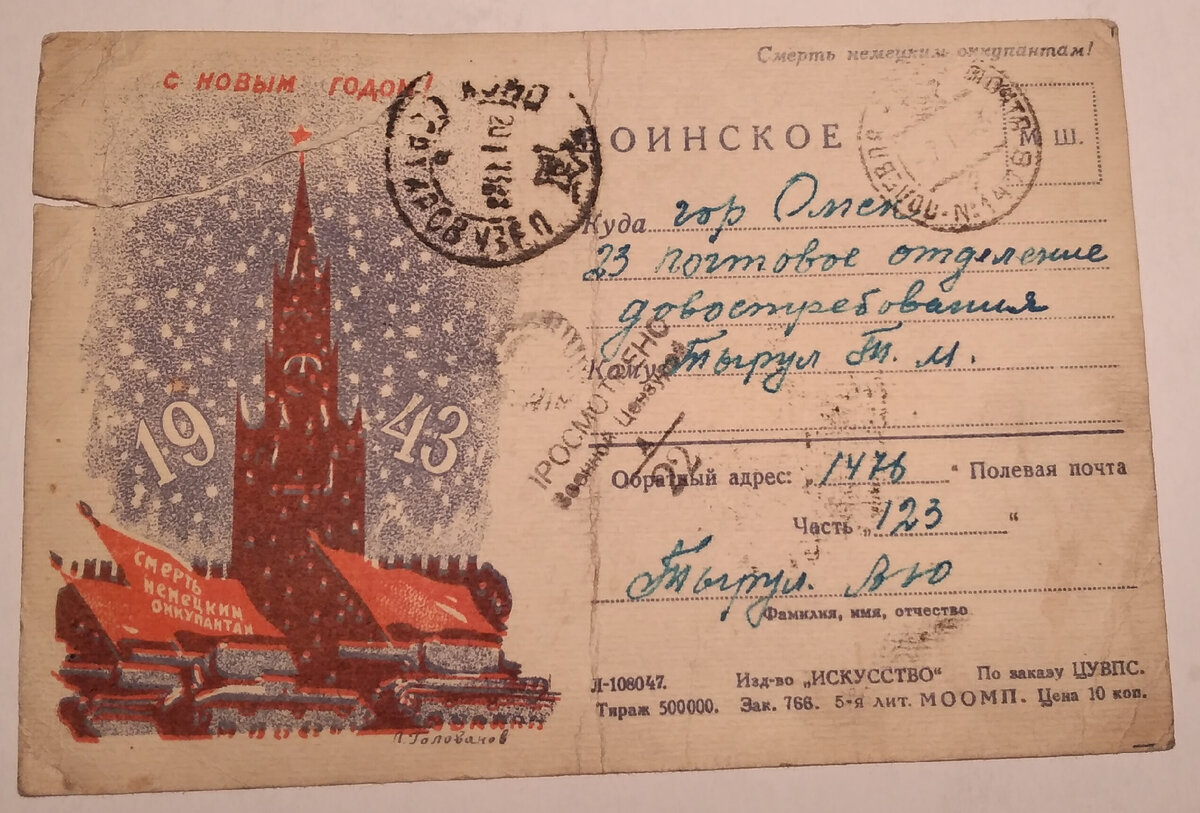 Смерть немецким оккупантам!
С НОВЫМ ГОДОМ!
ОИНСКОЕ
М Ш.
Куда гор Омск
23 почтовое отделение
довостребования
Кому Тырул Т. М.
19 43
ПРОСМОТРЕНО
Военной Цензурой
22
Обратный адрес: „1476 “ Полевая почта
Часть „123 “
Тырул. АЮ
Фамилия, имя, отчество
СМЕРТЬ
НЕМЕЦКИМ
ОККУПАНТАМ
Л-108047. Изд-во „ИСКУССТВО“ По заказу ЦУВПС.
Тираж 500000. Зак. 766. 5-я лит. МООМП. Цена 10 коп.
П. Голованов